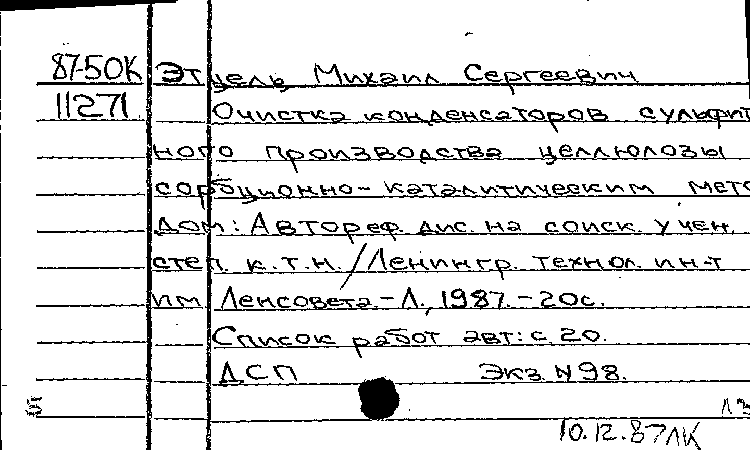 87-50К Этцель Михаил Сергеевич
11271 Очистка конденсаторов сульфит
ного производства целлюлозы
сорбционно-каталитическим мето
дом: Автореф. дис. на соиск. учен.
степ. к.т.н. / Ленингр. технол. ин-т
им Ленсовета. - Л., 1987. - 20с.
Список работ авт: с. 20.
ДСП Экз. N 98.
10.12.87 ЛК